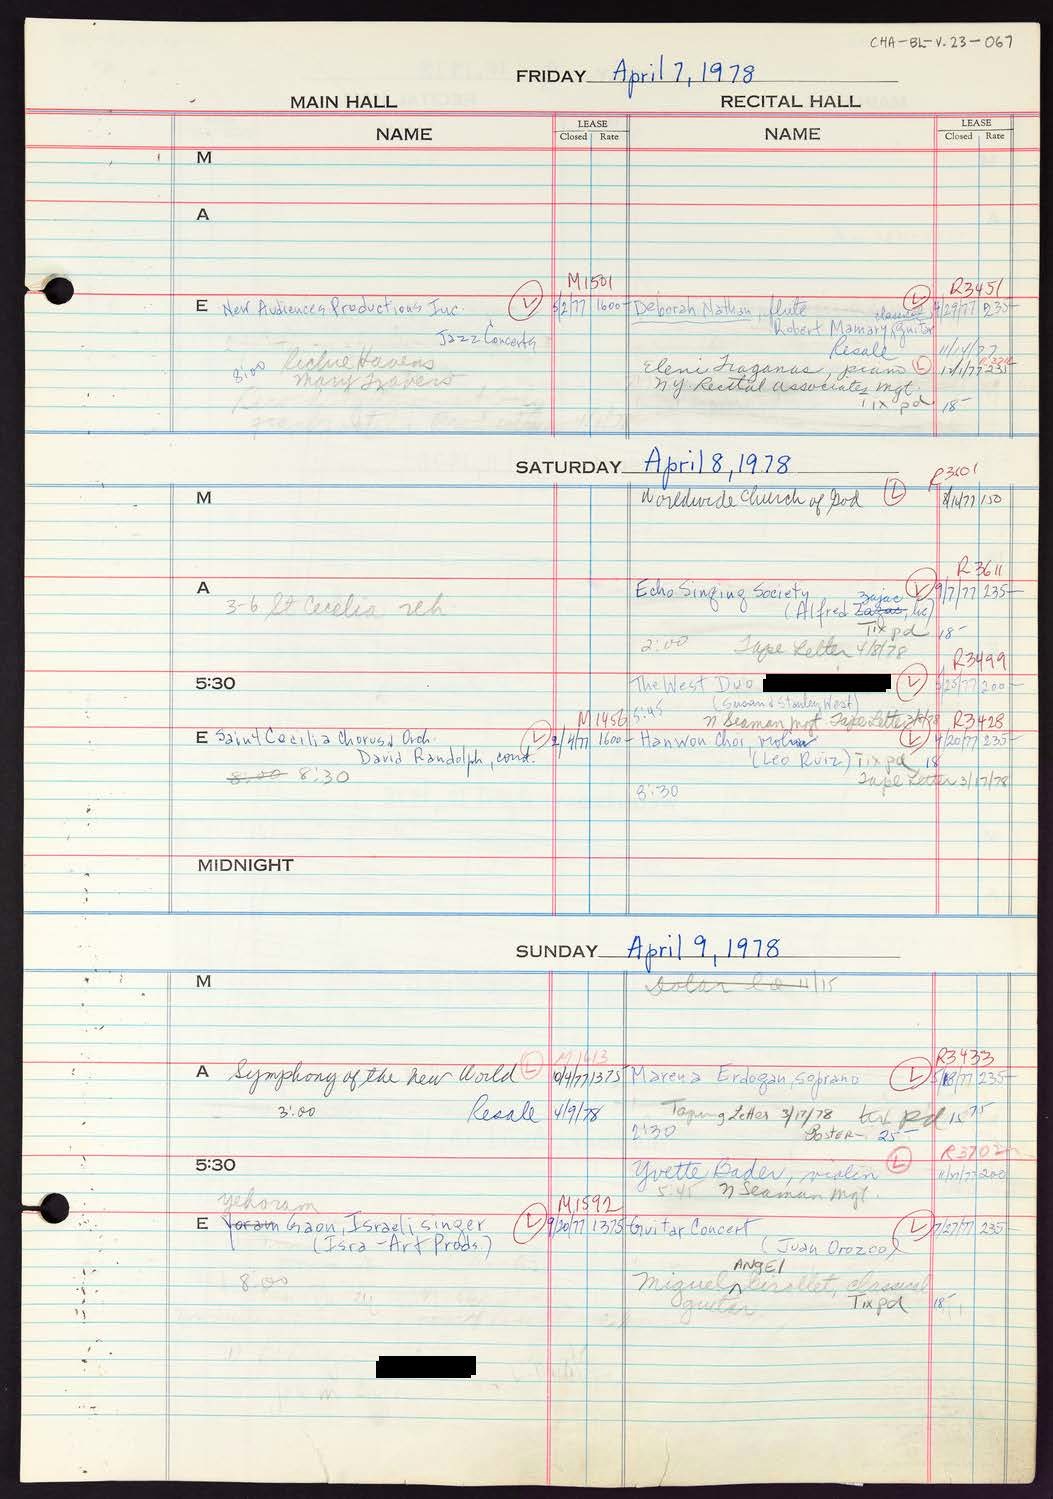 CHA-BL-V.23-067
FRIDAY April 7, 1978
MAIN HALL RECITAL HALL
NAME LEASE Closed Rate NAME LEASE Closed Rate
M
A
M1501 R3451
E New Audiences Productions Inc. L 5/2/77 1600- Deborah Nathan, flute L 4/29/77 235-
classical
Robert Mamary, guitar
Jazz Concerts
Resale 11/14/77
8:00 Richie Havens Eleni Traganas, piano L 12/1/77 235-
Mary Travers NY Recital Associates Mgt.
Tix pd 18-
SATURDAY April 8, 1978
R3601
M Worldwide Church of God L 8/16/77 150
R3611
A Echo Singing Society L 9/7/77 235-
3-6 St Cecelia reh Zajac
(Alfred Zazac, lic)
Tix pd 18-
2:00 Tape Letter 4/8/78
R3499
5:30 The West Duo L 5/25/77 200-
(Susan and Stanley West)
M1456 5:45 N Seaman Mgt. Tape Letter R3428
E Saint Cecilia Chorus & Orch. L 2/4/77 1600- Hanwon Choi, violin L 4/20/77 235-
David Randolph, cond. (Leo Ruiz) Tix pd 18
8:00 8:30 Tape Letter 3/17/78
8:30
MIDNIGHT
SUNDAY April 9, 1978
M 11/15
M1613 R3433
A Symphony of the New World L 10/4/77 1375 Marena Erdogan, soprano L 5/18/77 235-
3:00 Resale 4/9/78 Taping Letter 3/17/78 tix pd 15 75
2:30 Poster- 25-
R3702
5:30 Yvette Bader, violin L 11/17/77 200
5:45 N Seaman Mgt.
Yehoram M1592
E Yoram Gaon, Israeli singer L 9/20/77 1375 Guitar Concert L 7/27/77 235-
(Isra-Art Prods.) (Juan Orozco)
ANGEL
8:00 Miguel Girollet, classical
guitar Tix pd 18-